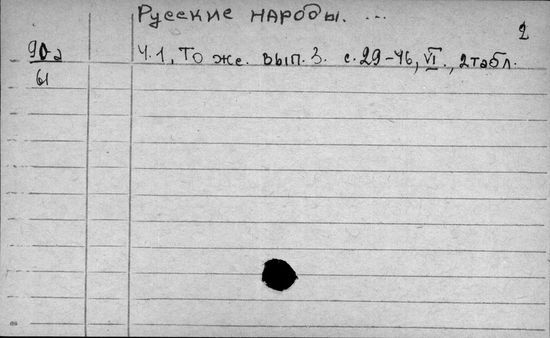 Русские народы. ...
2
90д
61
Ч.1, То же. вып. 3. с. 29-46, VI., 2табл.